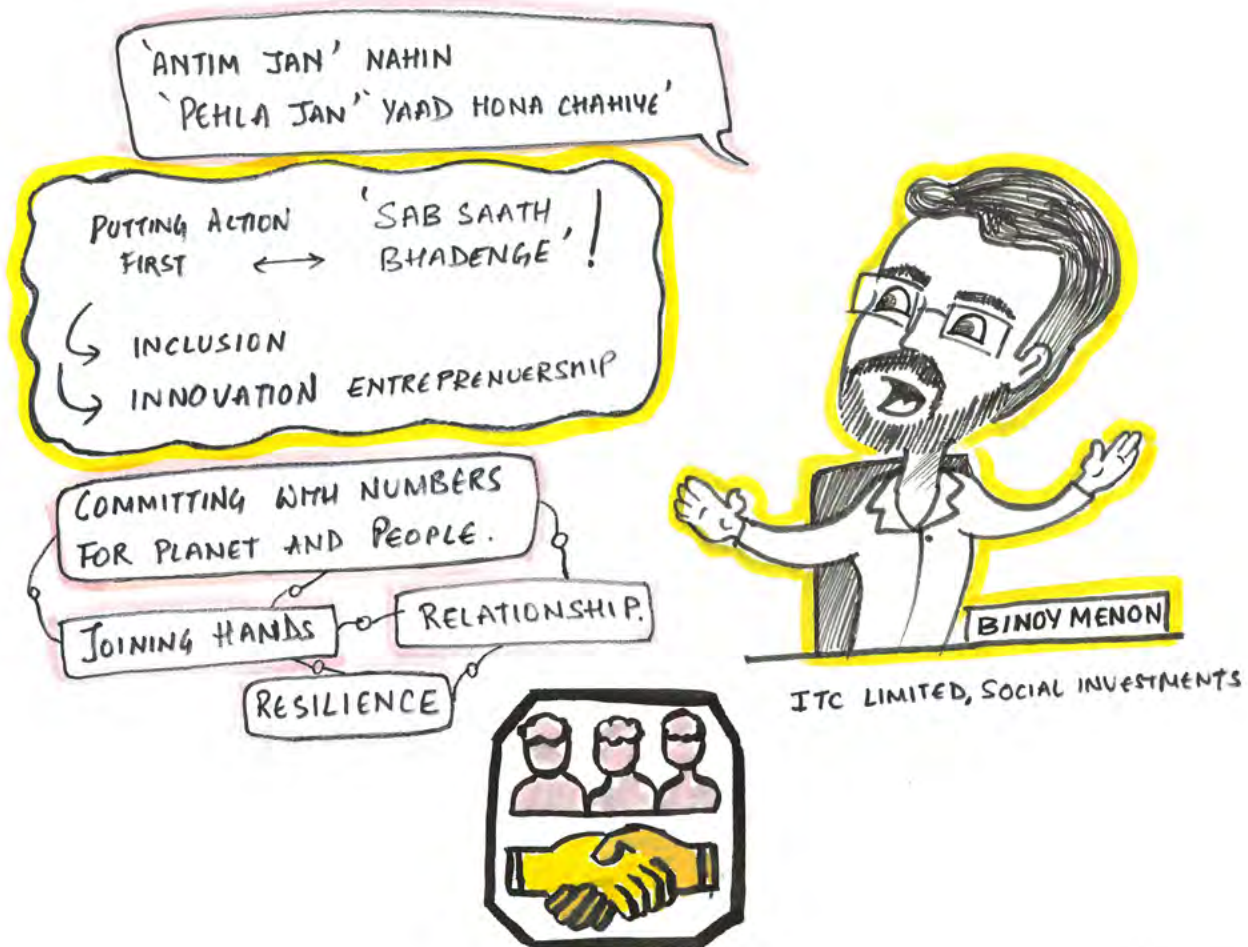 'ANTIM JAN' NAHIN
'PEHLA JAN' YAAD HONA CHAHIYE'
PUTTING ACTION
FIRST ↔
'SAB SAATH
BHADENGE' !
INCLUSION
INNOVATION ENTREPRENUERSHIP
COMMITTING WITH NUMBERS
FOR PLANET AND PEOPLE.
JOINING HANDS
RELATIONSHIP.
RESILIENCE
BINOY MENON
ITC LIMITED, SOCIAL INVESTMENTS